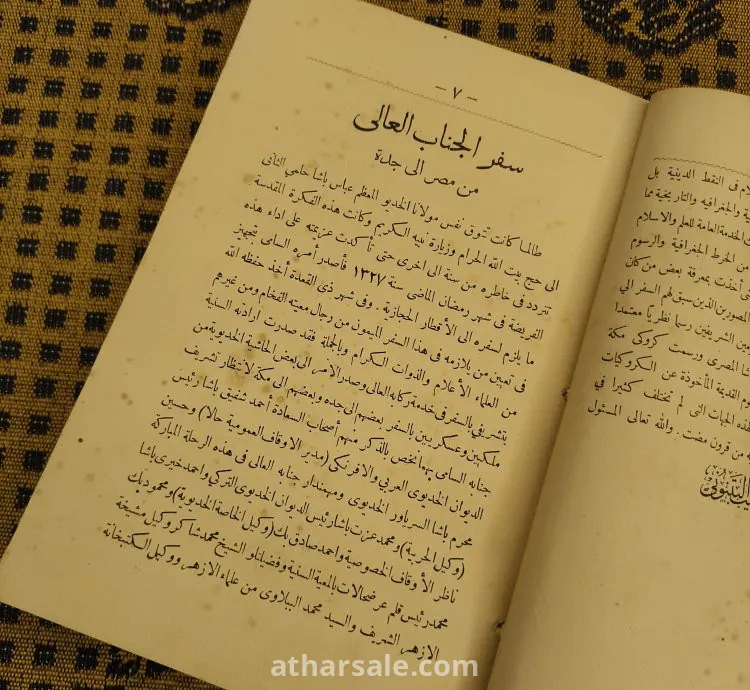 — ٧ —
سفر الجناب العالى
من مصر الى جدة
طالما كانت تتوق نفس مولانا الخديو المعظم عباس باشا حلمي الثانى
الى حج بيت الله الحرام وزيارة نبيه الكريم وكانت هذه الفكرة المقدسة
تتردد فى خاطره من سنة الى اخرى حتى تأكدت عزيمته على اداء هذه
الفريضة فى شهر رمضان الماضى سنة ١٣٢٧ فأصدر أمره السامى بتجهيز
ما يلزم لسفره الى الأقطار الحجازية . وفى شهر ذى القعدة أخذ حفظه الله
فى تعيين من يلازمه فى هذا السفر الميمون من رجال معيته الفخام ومن غيرهم
من العلماء الأعلام والذوات الكرام وبالجملة فقد صدرت ارادته السنية
بتشريفي بالسفر فى خدمة ركابه العالى وصدر الأمر الى بعض الحاشية الخديوية من
ملكيين وعسكريين بالسفر بعضهم الى جده وبعضهم الى مكة لانتظار تشريف
جنابه السامى بهما نخص بالذكر منهم أصحاب السعادة أحمد شفيق باشا رئيس
الديوان الخديوى العربي والافرنكى (مدير الاوقاف العمومية حالا) وحسين
محرم باشا السرياور الخديوى ومهمندار جنابه العالى فى هذه الرحلة المباركة
(وكيل الحربية) ومحمد عزت باشا رئيس الديوان الخديوى التركي واحمد خيرى باشا
ناظر الأوقاف الخصوصية واحمد صادق بك (وكيل الخاصة الخديوية) ومحمود بك
محمد رئيس قلم عرضحالات بالمعية السنية وفضيلتلو الشيخ محمد شاكر وكيل مشيخة
الازهر الشريف والسيد محمد الببلاوى من علماء الازهر ووكيل الكتبخانة
لام فى النقط الدينية بل
ية والجغرافيه والتاريخية مما
الخدمة العامة للعلم والاسلام
من الخرط الجغرافية والرسوم
أخذت بمعرفة بعض من كان
المصورين الذين سبق لهم السفر الى
مين الشريفين رسما نظريا معتمدا
شا المصرى ورسمت كروكى مكة
وم القديمة المأخوذة عن الكروكيات
هذه الجهات التى لم تختلف كثيرا فى
ه من قرون مضت . والله تعالى المسئول
البتنونى
atharsale.com